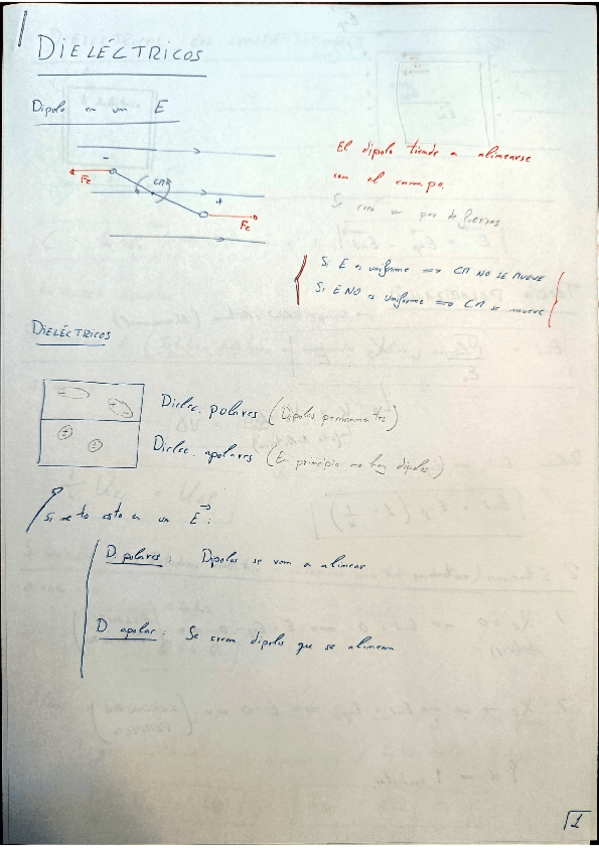 DIELÉCTRICOS
Dipolo en un E
El dipolo tiende a alinearse
con el campo.
Se crea un par de fuerzas
-
CM
+
Fe
Fe
Si E es uniforme => CM NO SE MUEVE
Si E NO es uniforme => CM se mueve
DIELÉCTRICOS
Dielec. polares (Dipolos permanentes)
Dielec. apolares (En principio no hay dipolos)
Si meto esto en un E:
D. polares: Dipolos se van a alinear
D apolar: Se crean dipolos que se alinean
1